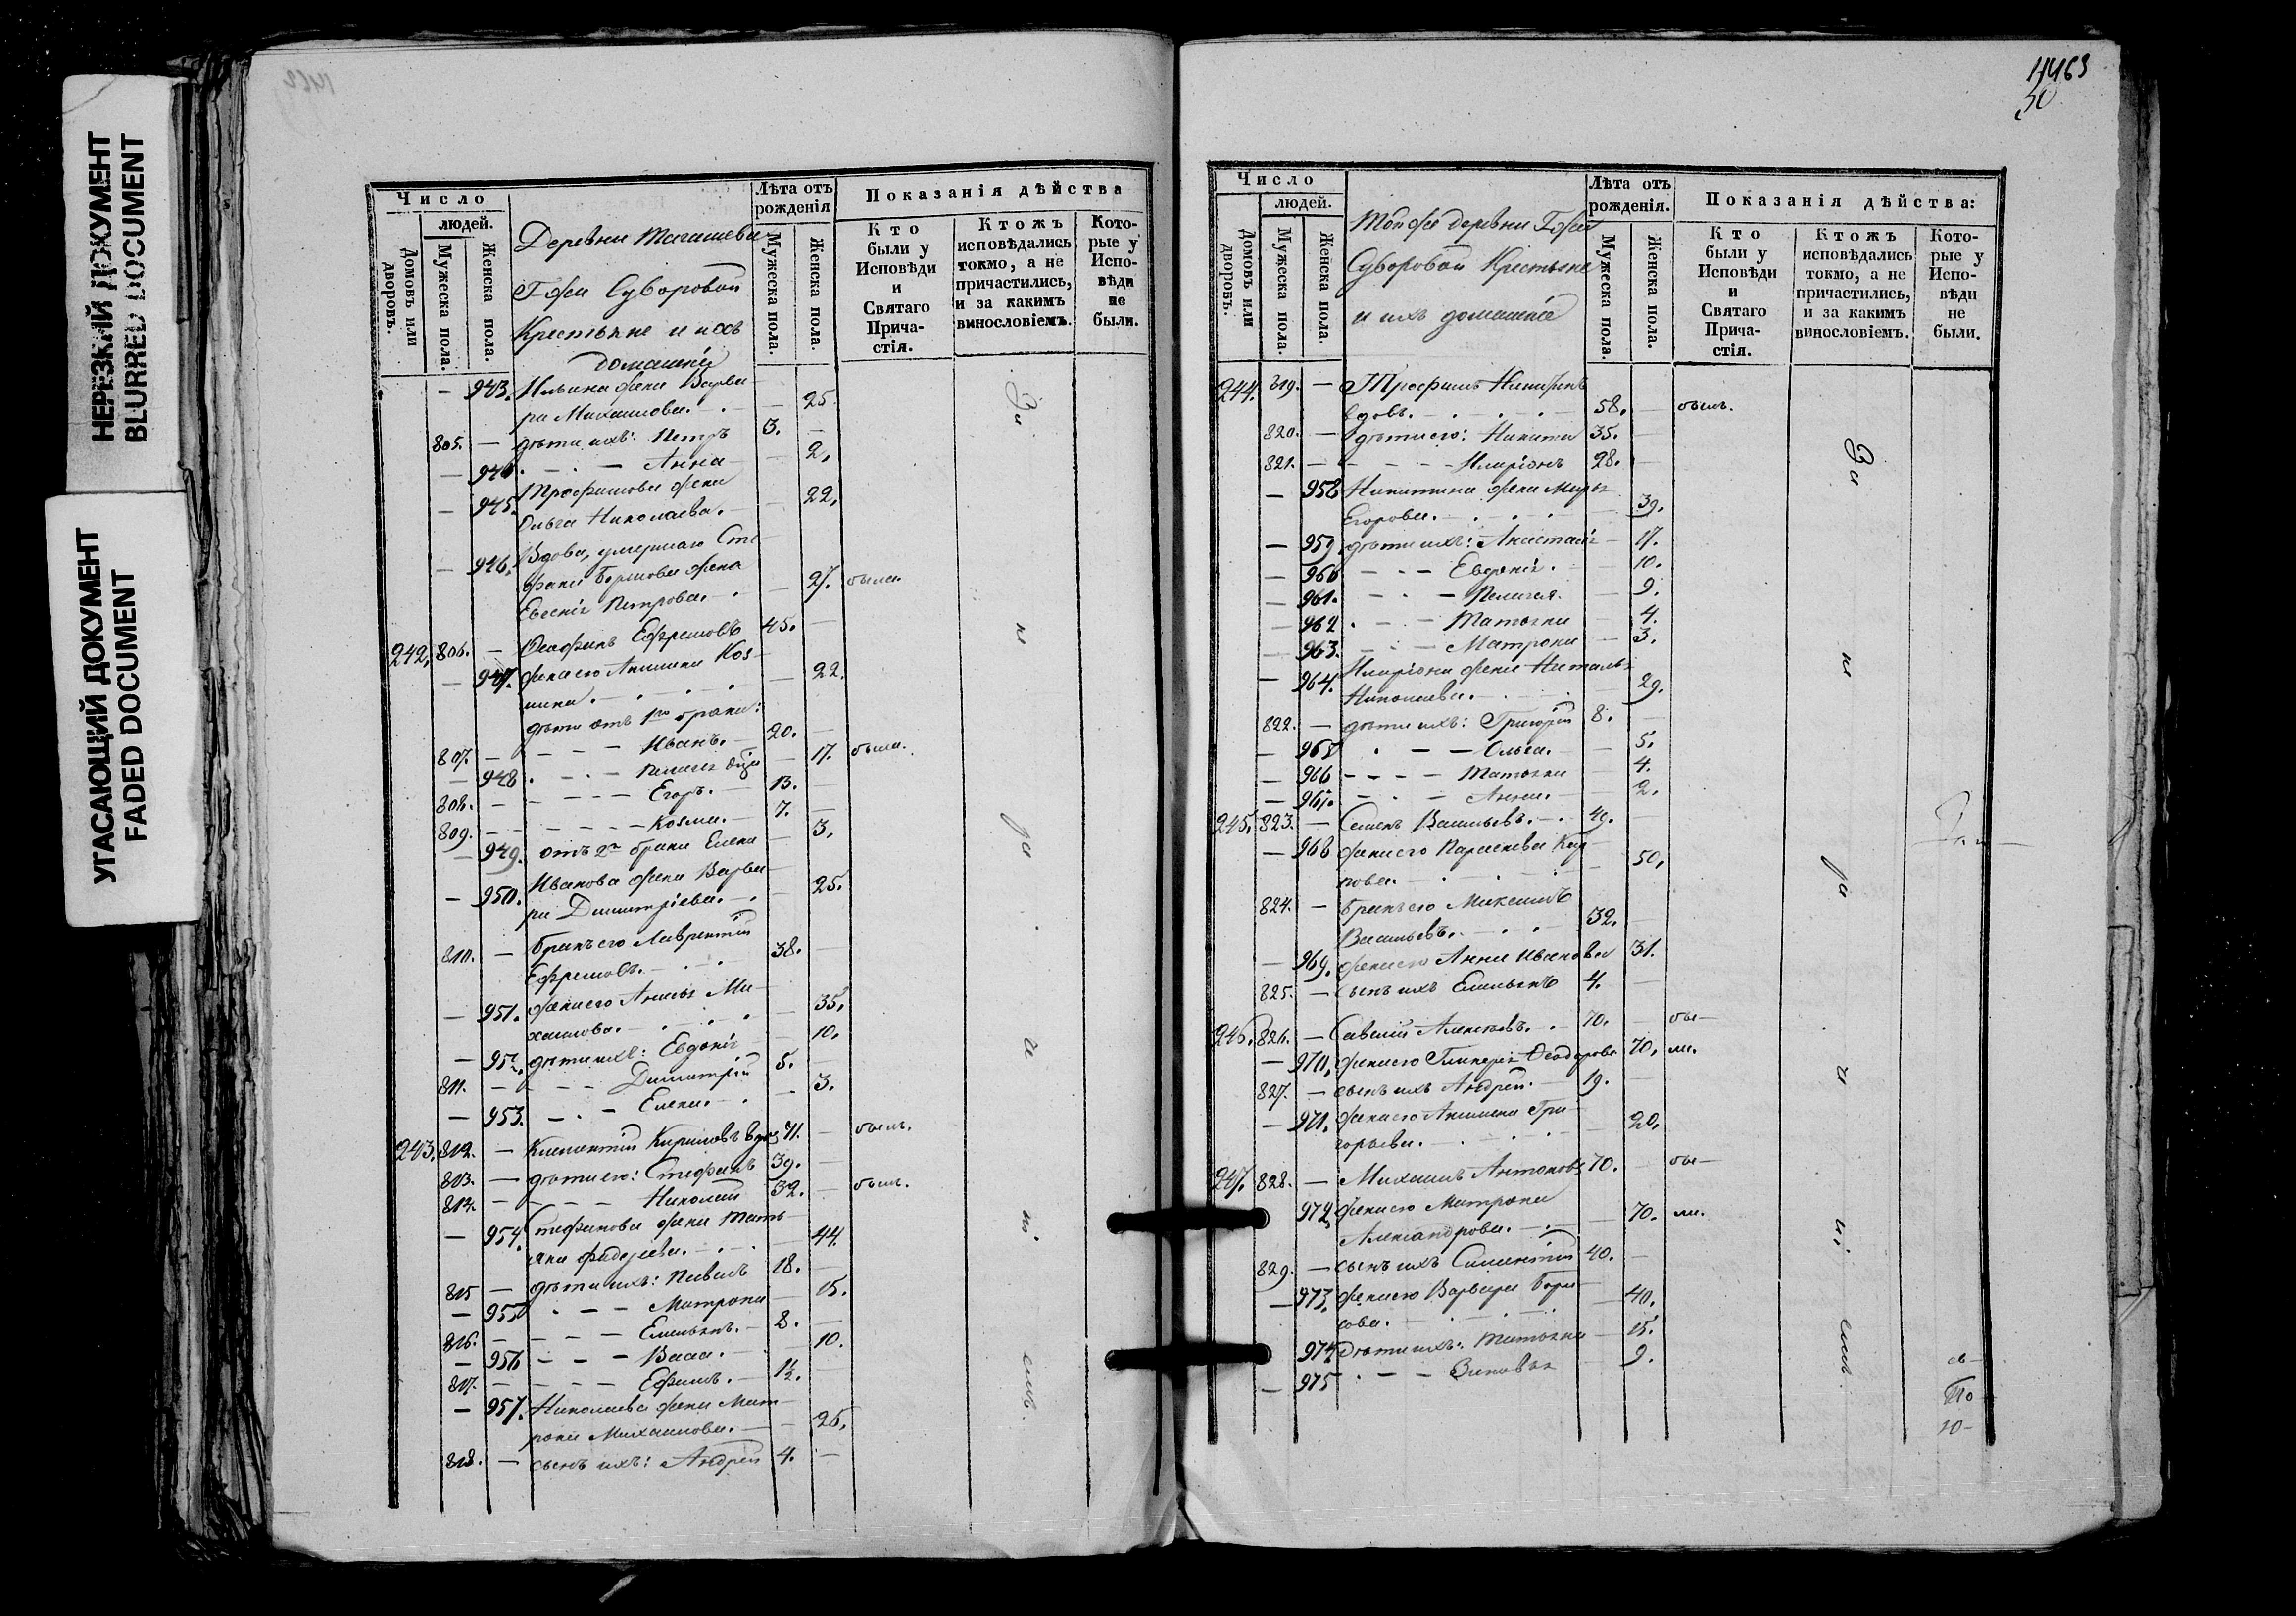 НЕРЕЗКИЙ ДОКУМЕНТ
BLURRED DOCUMENT
УГАСАЮЩИЙ ДОКУМЕНТ
FADED DOCUMENT
Число
людей.
Домовъ или дворовъ.
Мужеска пола.
Женска пола.
Деревни
Гжи Суворовой
Крестьяне и ихъ
домашніе
Лѣта отъ рожденія
Мужеска пола.
Женска пола.
Показанія дѣйства
Кто были у Исповѣди и Святаго Причастія.
Ктожъ исповѣдались токмо, а не причастились, и за какимъ винословіемъ.
Которые у Исповѣди не были.
— 943. Ильина жена Варва-
ра Михаилова. — 25.
805. — дѣти ихъ: Петръ 3. —
— 944. — Анна — 2.
— 945. Трофимова жена
Ольга Николаева. — 22.
— 946. Вдова, умершаго Сте-
фана жена
Петрова. — 27. была.
242. 806. — Ѳеофанъ Ефремовъ 45. —
— 947. жена его Акилина Коз-
мина. — 22.
дѣти отъ 1го брака:
807. — Иванъ. 20. —
— 948. Пелагея — 17. была.
808. — Егоръ. 13. —
809. — Козма. 7. —
— 949. отъ 2го брака Елена — 3.
— 950. Иванова жена Варва-
ра Димитріева. — 25.
810. — братъ его Лаврентій
Ефремовъ. 38. —
— 951. жена его Анисья Ми-
хаилова. — 35.
— 952. дѣти ихъ: Евдокія — 10.
811. — Димитрій 5. —
— 953. — Елена. — 3.
243. 812. — Климентій Кириловъ вдов 71. — былъ.
813. — дѣти его: Стефанъ 39. —
814. — Николай 32. — былъ.
— 954. Стефанова жена Тать-
яна Фадеева. — 44.
815 — дѣти ихъ: Павелъ 18. —
— 955 — Матрона — 15.
816. — Емельянъ. 8. —
— 956 — Васса. — 10.
817. — Ефимъ. 1½. —
— 957. Николаева жена Мат-
рона Михаилова. — 26.
818. — сынъ ихъ: Андрей 4. —
За
не
ра
1463
30
Число
людей.
Домовъ или дворовъ.
Мужеска пола.
Женска пола.
Тойже деревни Гжи
Суворовой Крестьяне
и ихъ домашніе
Лѣта отъ рожденія.
Мужеска пола.
Женска пола.
Показанія дѣйства:
Кто были у Исповѣди и Святаго Причастія.
Ктожъ исповѣдались токмо, а не причастились, и за какимъ винословіемъ.
Которые у Исповѣди не были.
244. 819. — Трофимъ
вдовъ. 58. — былъ.
820. — дѣти его: Никита 35. —
821. — Иларіонъ 28. —
— 958 Никитина жена Марья
Егорова. — 39.
— 959. дѣти ихъ: Анастасія — 17.
— 960 — Евдокія. — 10.
— 961. — Пелагея. — 9.
— 962. — Татьяна — 4.
— 963. — Матрона — 3.
— 964. Иларіона жена Наталья
Николаева. — 29.
822. — дѣти ихъ: Григорій 8. —
— 965 — Ольга. — 5.
— 966 — Татьяна — 4.
— 967. — Анна. — 2.
245. 823. — Семенъ Васильевъ. 49. —
— 968 жена его Параскева Кар-
пова. — 50.
824. — братъ его Максимъ
Васильевъ. 32. —
— 969. жена его Анна Иванова 31.
825. — сынъ ихъ Емельянъ 4. —
246. 826. — Савелій Алексѣевъ. 70. — бы-
— 970. жена его Гликерія Ѳеодорова 70. ли.
827. — сынъ ихъ Андрей. 19. —
— 971. жена его Акилина Гри-
горьева. — 20.
247. 828. — Михаилъ Антоновъ 70. — бы-
972. жена его Матрона
Александрова. — 70. ли.
829. — сынъ ихъ 40. —
— 973. жена его Варвара Бори-
сова. — 40.
974. Дѣти ихъ: Татьяна — 15.
— 975 — Зиновья — 9.
За
не
ра